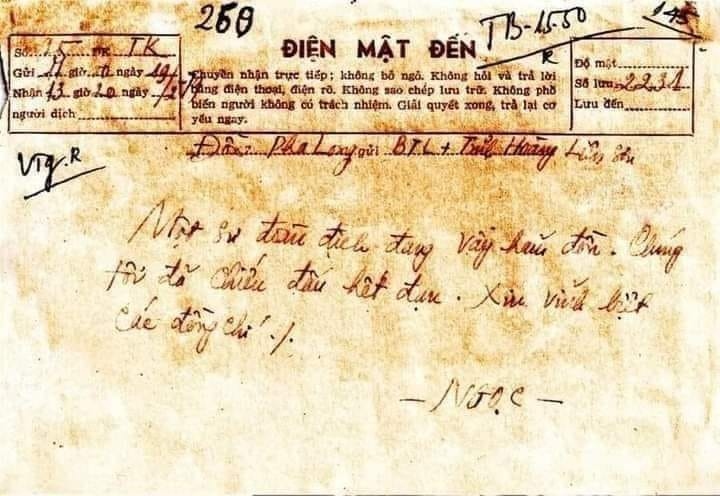 260
TB-15.50
R
145
ĐIỆN MẬT ĐẾN
Số 25 ĐK TK
Gửi 11 giờ ngày 19/
Nhận 13 giờ 20 ngày /2
người dịch
Chuyển nhận trực tiếp; không bỏ ngỏ. Không hỏi và trả lời
bằng điện thoại, điện rõ. Không sao chép lưu trữ. Không phổ
biến người không có trách nhiệm. Giải quyết xong, trả lại cơ
yếu ngay.
Độ mật
Số lưu 2231
Lưu đến
Vtg.R
Đồn: Pha Long gửi BTL + Tỉnh Hoàng Liên Sơn
Một sư đoàn địch đang vây hãm đồn. Chúng
tôi đã chiến đấu hết đạn. Xin vĩnh biệt
các đồng chí ./.
— NGỌC —